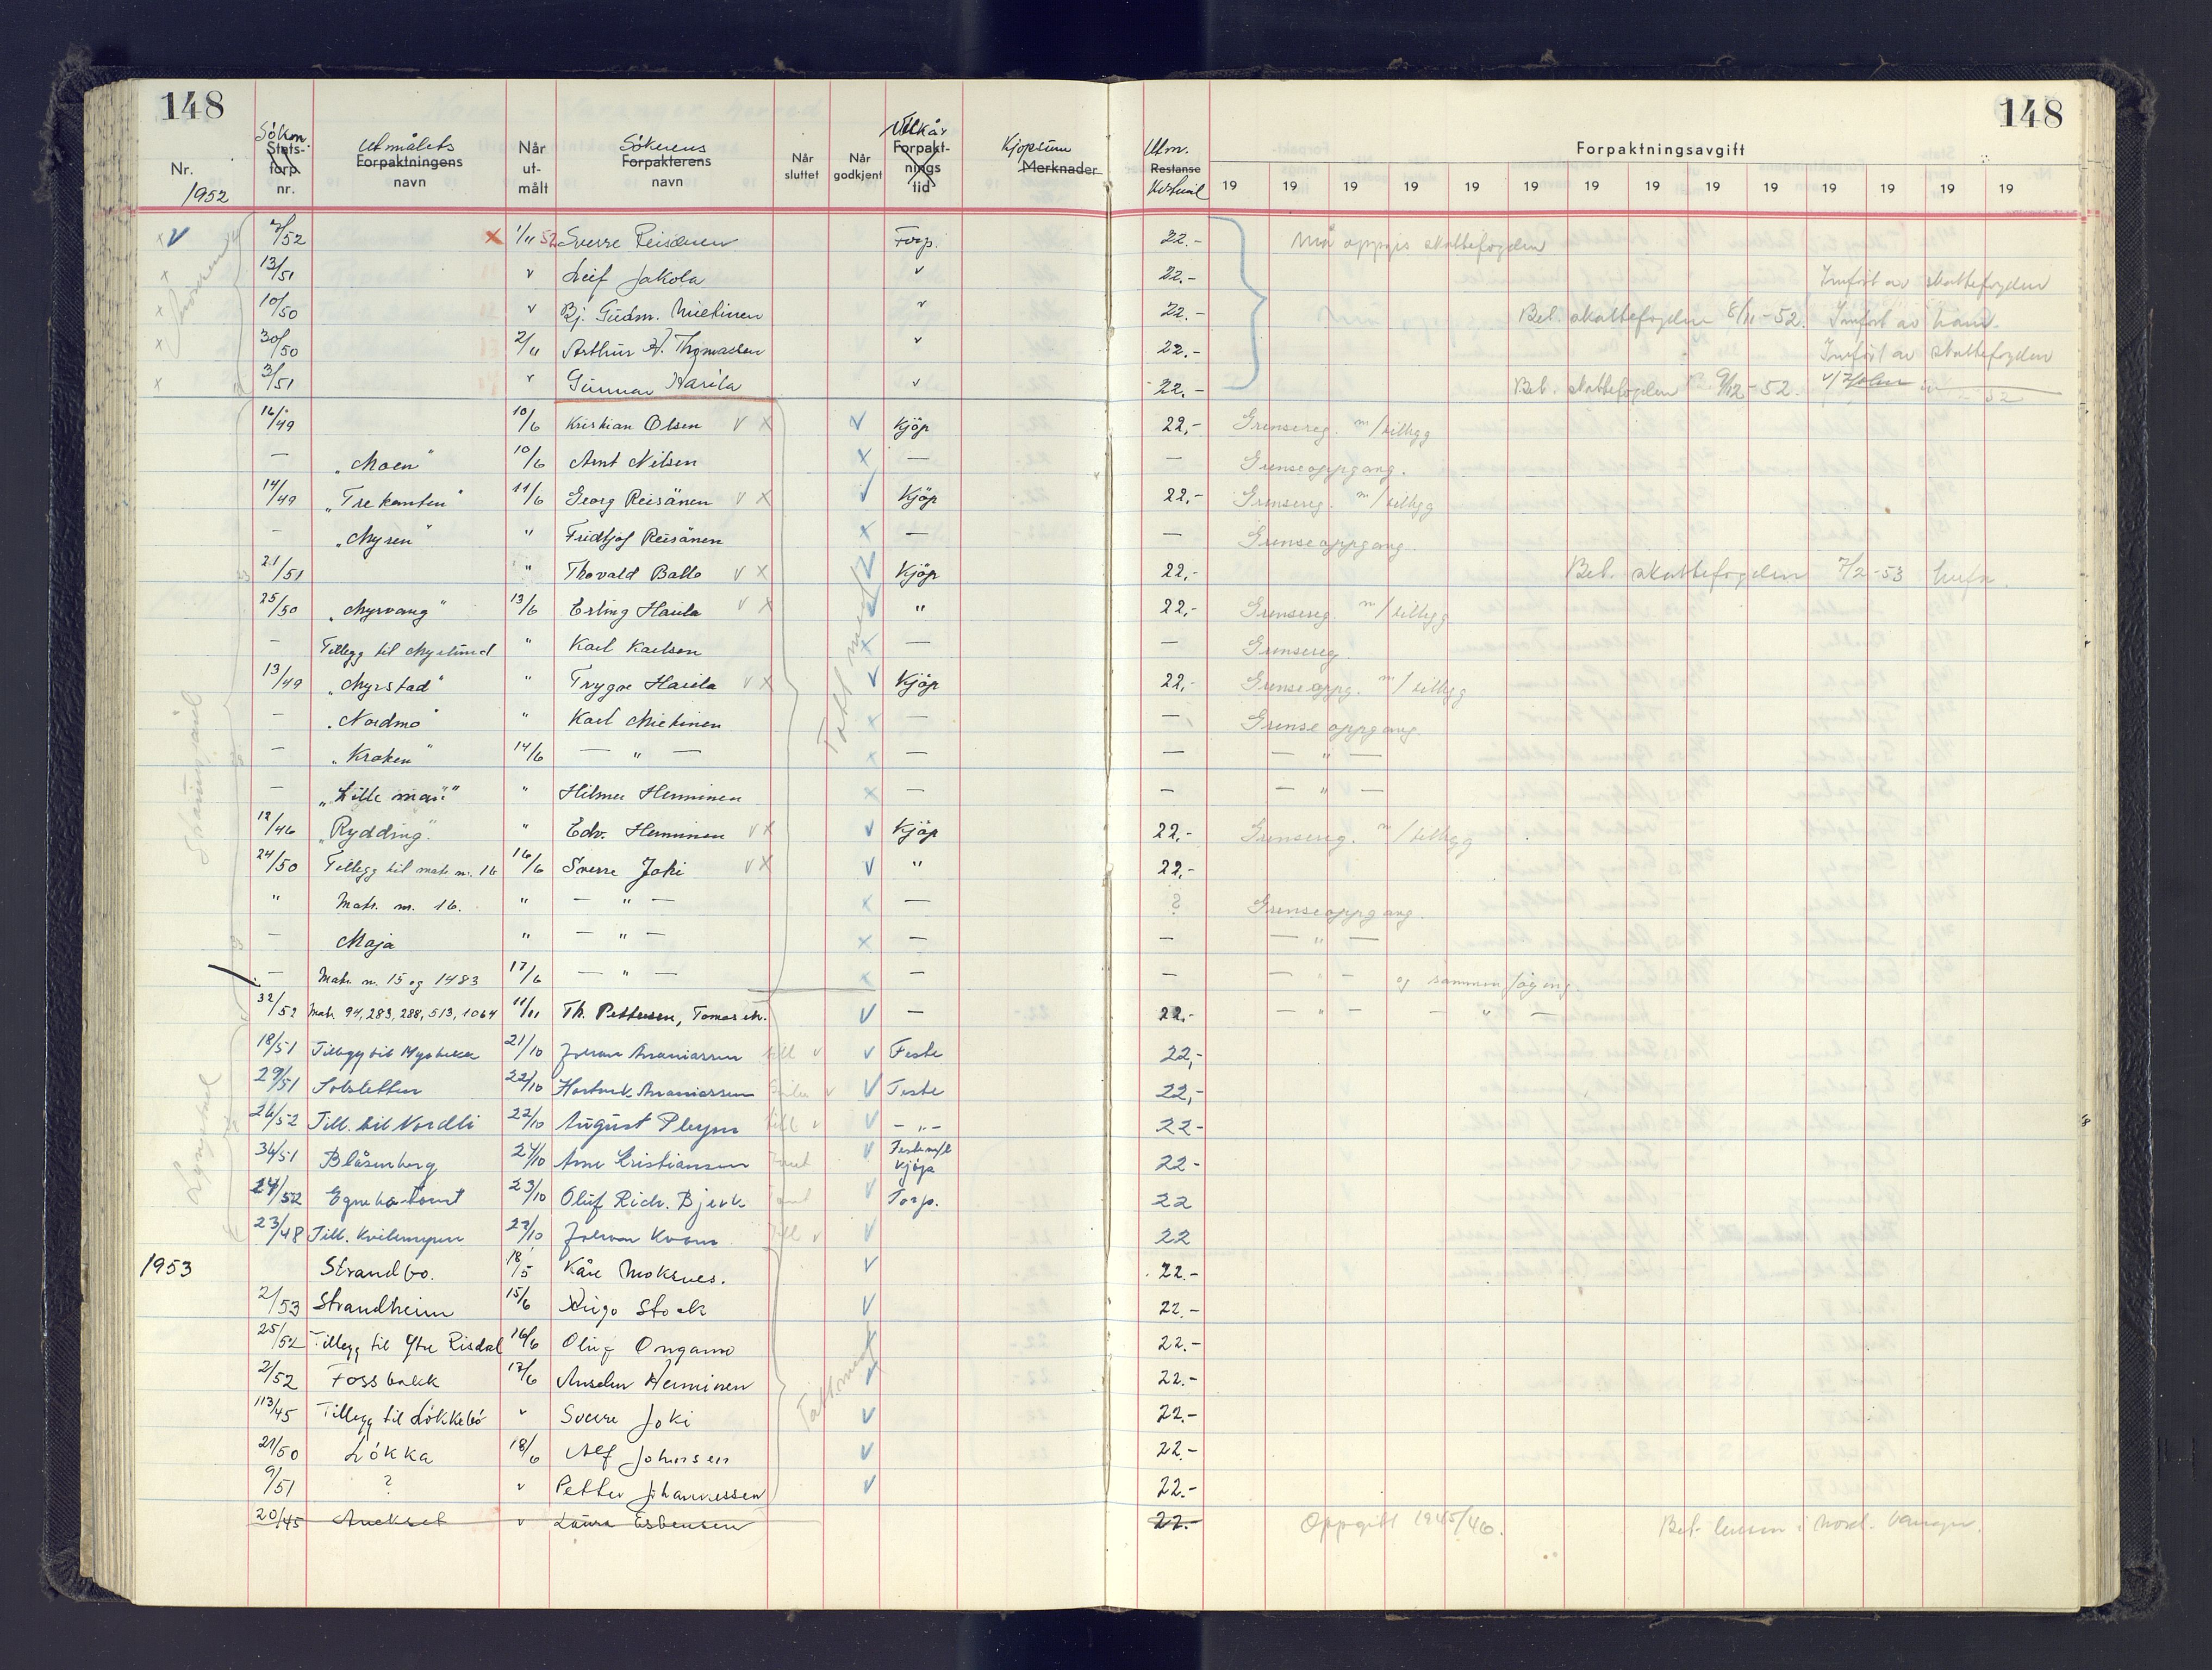 148 148
Nr. Søkn. Stats-forp. nr. Utmålets Forpaktningens navn Når ut-målt Søkerens Forpakterens navn Når sluttet Når godkjent Vilkår Forpakt-nings tid Kjøpsum Merknader Utm. Restanse Kostnad Forpaktningsavgift
1952 19 19 19 19 19 19 19 19 19 19 19 19 19 19
7/52 1/11 52 Sverre Reisänen Forp. 22.- Må oppgis skattefogden
13/51 " Leif Jakola " 22.- Innført av skattefogden
10/50 " Bj. Gudm. Mietinen " 22.- Bet. skattefogden 8/11-52. Innført av ham.
30/50 2/11 Arthur H. Thomassen " 22.- Innført av skattefogden
3/51 " Gunnar Harila " 22.- Bet. skattefogden 9/12-52.
16/49 10/6 Kristian Olsen Kjöp 22,- Grensereg. m/tillegg
— "Moen" 10/6 Arnt Nilsen — — Grenseoppgang.
14/49 "Trekanten" 11/6 Georg Reisänen Kjöp 22,- Grensereg. m/tillegg
— "Myren" " Fridtjof Reisänen — — Grenseoppgang.
21/51 " Thovald Ballo Kjöp 22,- Bet. skattefogden 7/2-53
25/50 "Myrvang" 13/6 Erling Harila " 22,- Grensereg. m/tillegg
— Tillegg til Myrlund " Karl Karlsen — — Grensereg.
13/49 "Myrstad" " Trygve Harila Kjöp 22,- Grenseoppg. m/tillegg
— "Nordmo" " Karl Mietinen — — Grenseoppgang
— "Kroken" 14/6 — " — — — — " —
— "Lille mari" " Hilmer Henninen — — — " —
12/46 "Rydding" " Edv. Henninen Kjöp 22,- Grensereg. m/tillegg
24/50 Tillegg til matr. nr. 16 16/6 Sverre Joki " 22,-
" Matr. nr. 16. " — " — — ? Grenseoppgang.
— Maja " — " — — — — " —
— Matr. nr. 15 og 1483 17/6 — " — — — — " — og sammenføying.
32/52 Matr. 94, 283, 288, 513, 1064 11/11 Th. Pettersen, Tomas — 22.- — " — — " —
18/51 Tillegg til 21/10 Johan Ananiassen Feste 22,-
29/51 Solsletten 22/10 Ananiassen Feste 22,-
26/52 Till. til Nordli 22/10 August Pleym — " — 22-
36/51 Blåsenborg 24/10 Arne Kristiansen Feste m/l kjöp 22-
24/52 23/10 Oluf Rich. Bjerk Forp. 22
23/48 Till. Kvilemyren 22/10 Johan 22
1953 Strandbo. 18/5 Kåre Moksnes. 22.-
2/53 Strandheim 15/6 Hugo Stock 22.-
25/52 Tillegg til Ytre Risdal 16/6 Oluf Ongamo 22.-
2/52 Fossbakk 17/6 Anselm Henninen 22.-
113/45 Tillegg til Lökkebö " Sverre Joki 22.-
21/50 Lökka 18/6 Alf Johnsen 22.-
9/51 ? " Petter Johannessen 22.-
20/45 " Laura Esbensen 22.- Oppgitt 1945/46.